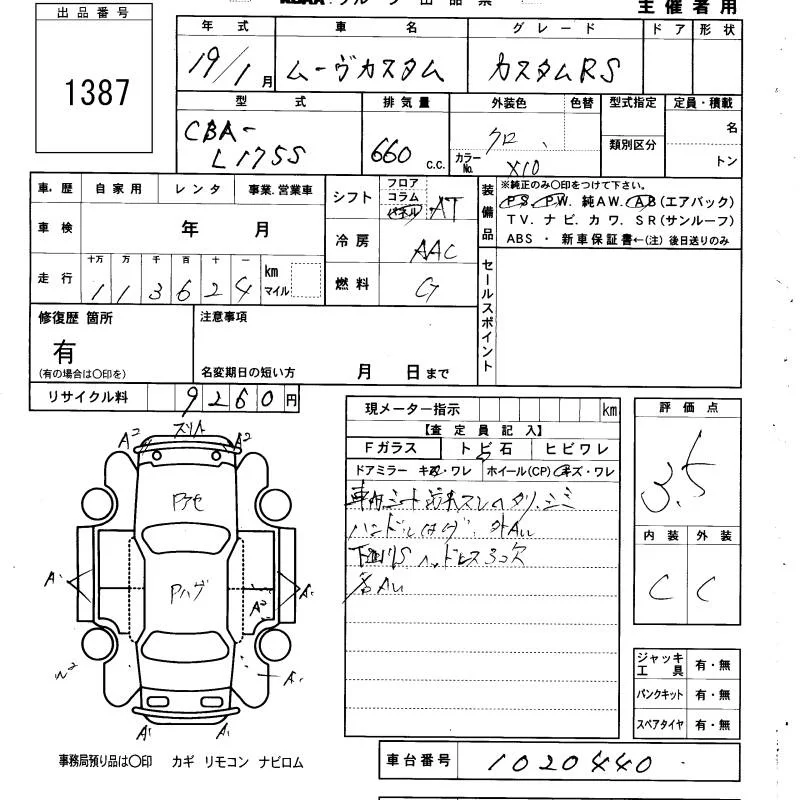 出品番号
1387
主催者用
年式 車名 グレード ドア 形状
19/1月 ムーヴカスタム カスタムRS
型式 排気量 外装色 色替 型式指定 定員・積載
CBA-
L175S
660 c.c.
クロ
カラーNo. X10
類別区分
名
トン
車歴 自家用 レンタ 事業.営業車
車検 年 月
走行 十万 万 千 百 十 一
113624 km マイル
シフト フロア コラム パネル AT
冷房 AAC
燃料 G
装備品
※純正のみ〇印をつけて下さい。
PS. PW. 純AW. AB(エアバック)
TV. ナビ. カワ. SR(サンルーフ)
ABS ・ 新車保証書←(注) 後日送りのみ
セールスポイント
修復歴 箇所
有
(有の場合は〇印を)
注意事項
名変期日の短い方 月 日まで
リサイクル料 9260円
現メーター指示 km
【査定員記入】
Fガラス トビ石 ヒビワレ
ドアミラー キズ・ワレ ホイール(CP) キズ・ワレ
評価点
3.5
内装 外装
C C
A2 スリキズ A2
Pアセ
Pハゲ
A1 A1
A2
A1
A1 A1
ハンドルハゲ
ジャッキ
工具 有・無
パンクキット 有・無
スペアタイヤ 有・無
事務局預り品は〇印 カギ リモコン ナビロム
車台番号 1020440